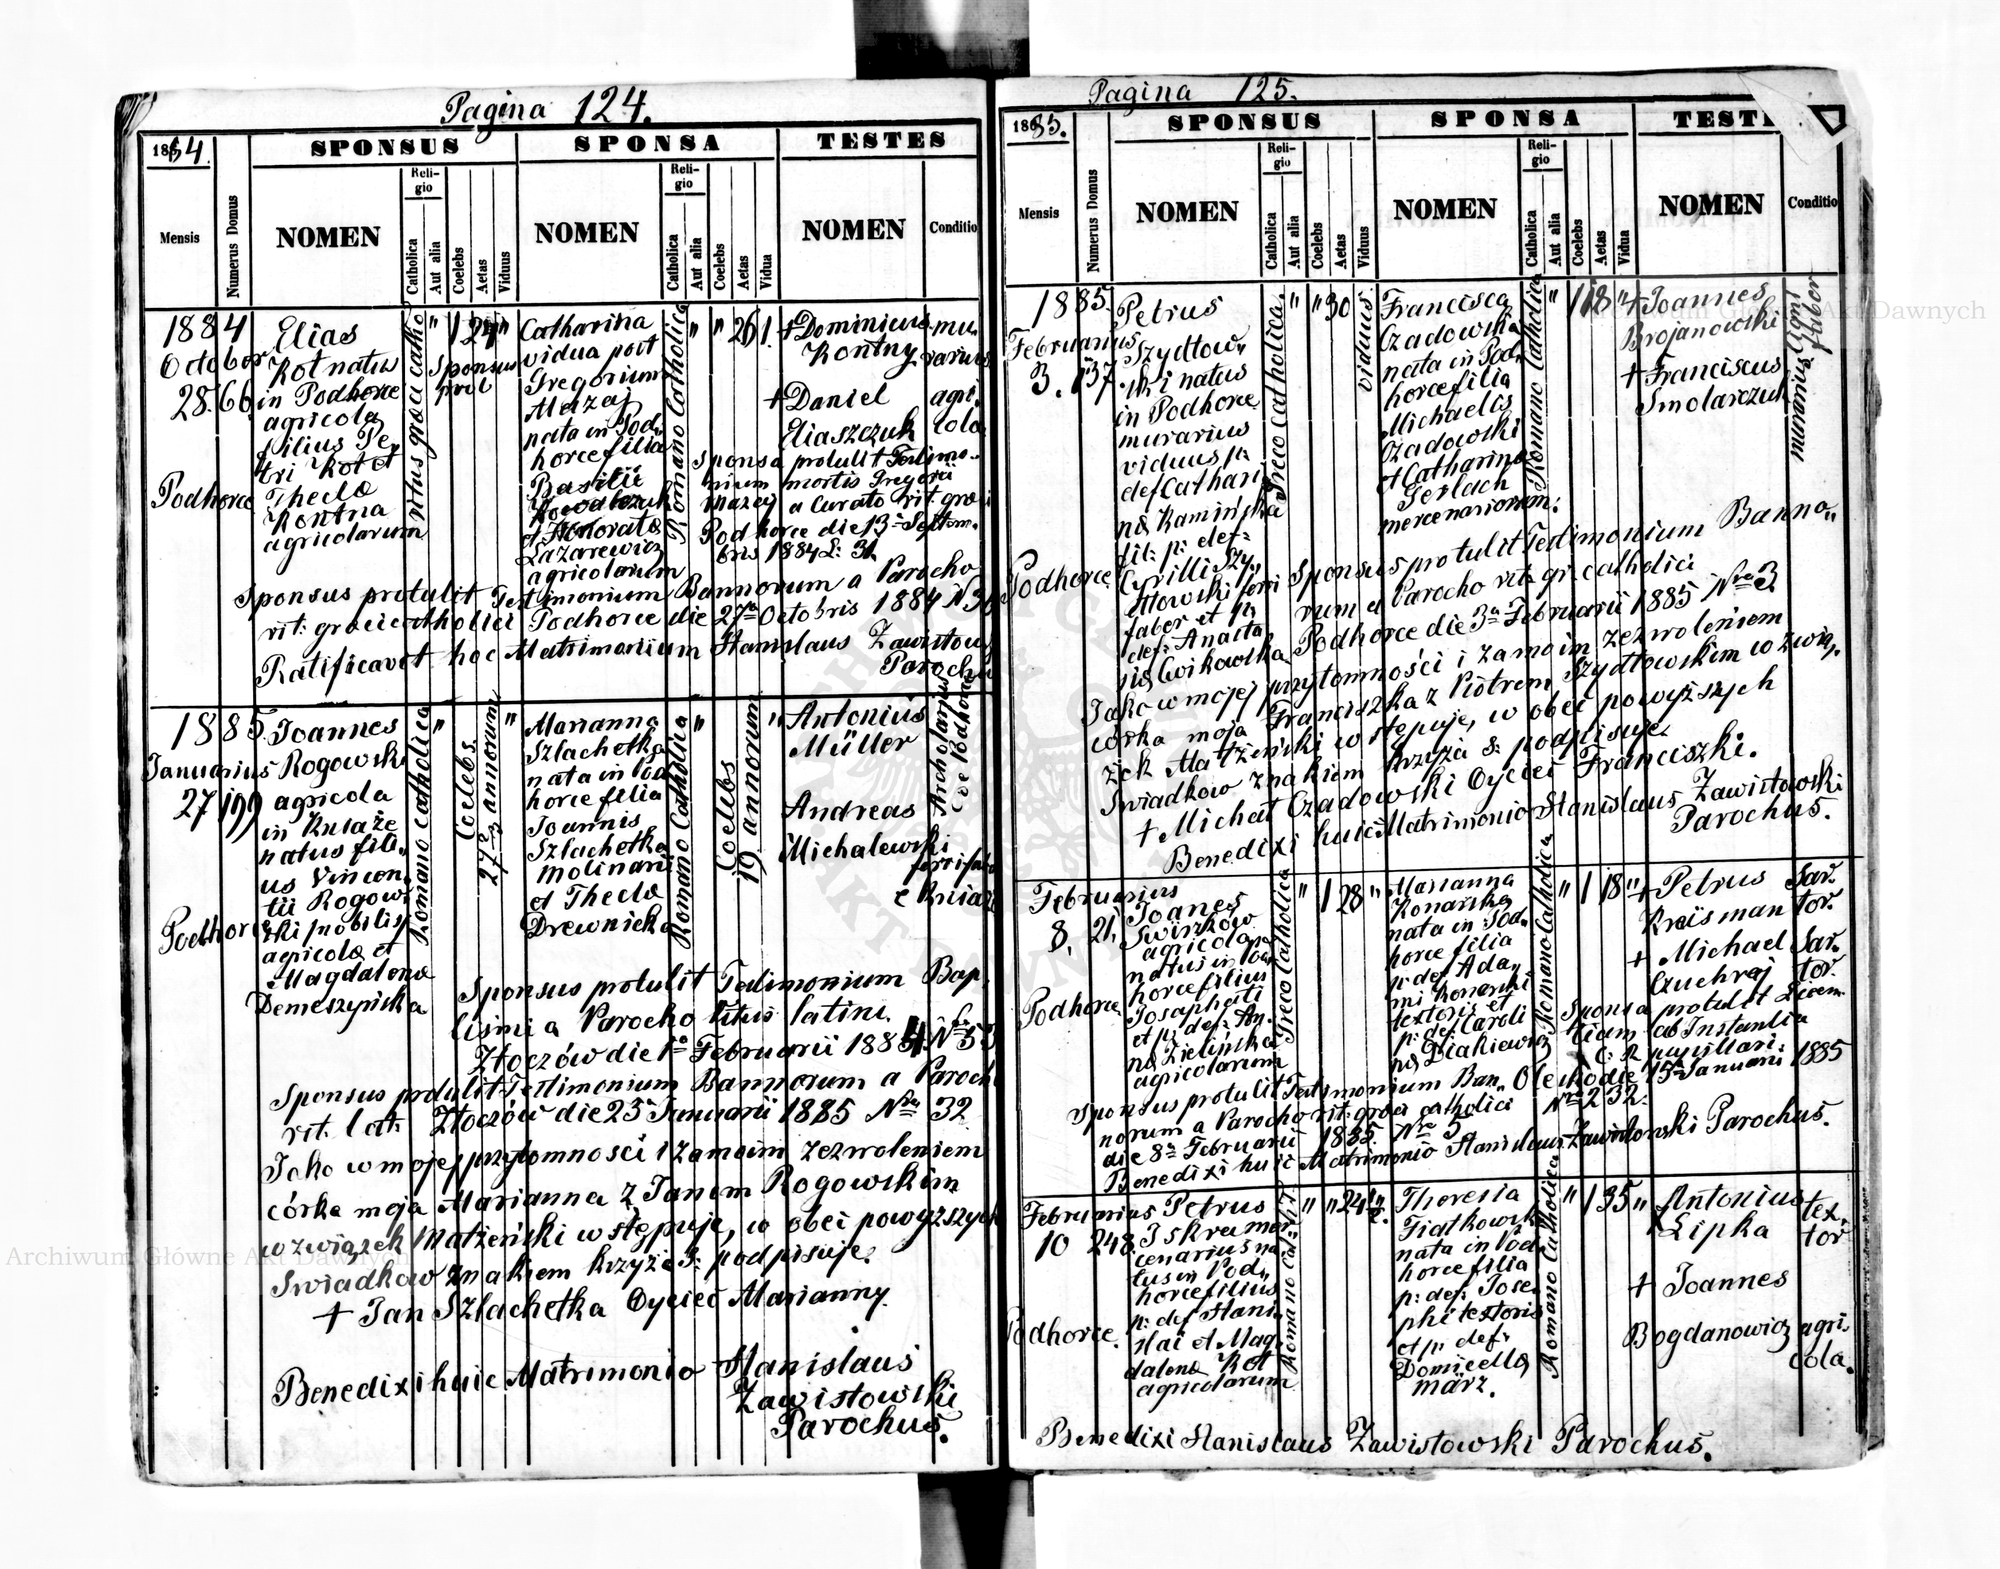 Pagina 124.
1884.
SPONSUS
SPONSA
TESTES
Mensis
Numerus Domus
NOMEN
Religio
Catholica
Aut alia
Coelebs
Aetas
Viduus
NOMEN
Religio
Catholica
Aut alia
Coelebs
Aetas
Vidua
NOMEN
Conditio
1884
October
28. 66.
Podhorce
Elias
Kot natus
in Podhorce
agricola
filius Pe
tri Kot et
Thecla
Kontna
agricolarum
ritus graeci catho
" 1 24 "
Sponsus
Catharina
vidua post
Gregorium
Mazaj
nata in Pod
horce filia
Basilii
Kowalczuk
et Honorata
Lazarewicz
agricolarum
Romano Catholica
" " 26 1.
+ Dominicus mu-
Kontny rarius
+ Daniel agri-
Eliaszczuk cola
Sponsa protulit Testimo-
nium mortis Gregorii
Mazaj a Curato rit. graeci
Podhorce die 13a Septem.
bris 1884 L: 31.
Sponsus protulit Testimonium Bannorum a Parocho
rit: graeci catholici Podhorce die 27a Octobris 1884 N 30
Ratificavit hoc Matrimonium Stanislaus Zawistows
Parochus
1885.
Januarius
27 199
Podhorce
Joannes
Rogowski
agricola
in Kniaże
natus fili,
us Vincen,
tii Rogow
ski nobilis
agricola et
Magdalena
Demeszyńska
Romano catholica
"
Coelebs.
27 3/4 annorum
"
Marianna
Szlachetka
nata in Pod
horce filia
Joannis
Szlachetka
molinarii
et Thecla
Drewnicka
Romano Catholica
"
Coelebs
19 annorum
"
Antonius
Müller
Andreas
Michalewski
e Kniaże
Sponsus protulit Testimonium Bap,
tismi a Parocho ritus latini
Złoczów die 1a Februarii 1884 No 53
Sponsus protulit Testimonium Bannorum a Paroch
rit. lat. Złoczów die 25 Januarii 1885 Nro 32
Jako w mojej przytomności i zamoim zezwoleniem
córka moja Marianna z Janem Rogowskim
w związek Małżeński wstępuje, w obec powyższych
Swiadków znakiem krzyża S: podpisuje.
+ Jan Szlachetka Oyciec Marianny.
Benedixi huic Matrimonio Stanislaus
Zawistowski
Parochus.
Pagina 125.
1885.
SPONSUS
SPONSA
TEST
Mensis
Numerus Domus
NOMEN
Religio
Catholica
Aut alia
Coelebs
Aetas
Viduus
NOMEN
Religio
Catholica
Aut alia
Coelebs
Aetas
Vidua
NOMEN
Conditio
1885.
Februarius
3. 137.
Podhorce
Petrus
Szydłow,
ski natus
in Podhorce
murarius
viduus p:
def Cathari
na Kamińska
fil: p: def:
Cyrilli Szy,
dłowski ferri
faber et p:
def: Anasta
sia Cwikowska
Greco catholica
" " 30
viduus
Francisca
Czadowska
nata in Pod,
horce filia
Michaelis
Czadowski
et Catharina
Gerlach
mercenariorum:
Romano Catholica
" 1 18 "
+ Joannes
Brojanowski
+ Franciscus
Smolarczuk
murarius
faber
Sponsus protulit Testimonium Banno,,
rum a Parocho rit: gr. catholici
Podhorce die 3a Februarii 1885 Nro 3.
Jako w mojej przytomności i zamoim zezwoleniem
córka moja Franciszka z Piotrem Szydłowskim w zwią,
zek Małżeński wstępuje, w obec powyższych
Swiadków znakiem krzyża S: podpisuje
+ Michał Czadowski Oyciec Franciszki.
Benedixi huic Matrimonio Stanislaus Zawistowski
Parochus.
Februarius
8. 21.
Podhorce
Joanes
Swirzków
agricola
natus in Pod
horce filius
Josaphati
et p: def: An,
na Zielińska
agricolarum
Greco Catholica
" 1 28 "
Marianna
Konarska
nata in Pod,
horce filia
p: def Ada,
mi Konarski
textoris et
p: def Caroli
na Dziakiewicz
Romano Catholica
" 1 18 "
+ Petrus Sar-
Kraisman tor.
+ Michael Sar-
Kuchraj tor.
Sponsa protulit Licen-
tiam ab Instantia
pupillari:
Olesko die 15a Januarii 1885
Nro 232.
Sponsus protulit Testimonium Ban,,
norum a Parocho rit: graeci catholici
die 8a Februarii 1885. Nro 5
Benedixi huic Matrimonio Stanislaus Zawistowski Parochus.
Februarius
10 248
Podhorce.
Petrus
Iskra mer
cenarius na
tus in Pod,
horce filius
p: def Stani,
slai et Mag
dalena Kot
agricolarum
Romano cath
" " 24 1/2.
Theresia
Fiałkowska
nata in Pod
horce filia
p: def: Jose
phi textoris
et p: def:
Domicella
märz.
Romano Catholica
" 1 35 "
+ Antonius tex
Lipka tor
+ Joannes
Bogdanowicz agri-
cola.
Benedixi Stanislaus Zawistowski Parochus.
Archiwum Główne Akt Dawnych
Archiwum Główne Akt Dawnych